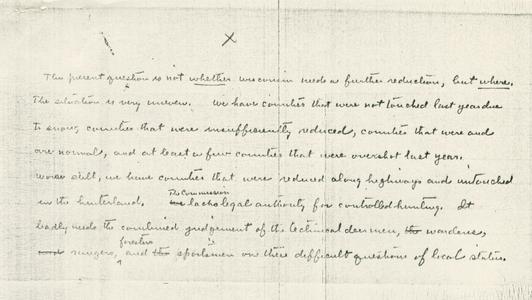 The present question is not whether Wisconsin needs a further reduction, but where.
The situation is very uneven. We have counties that were not touched last year due
to snow, counties that were insufficiently reduced, counties that were and
are normal, and at least a few counties that were overshot last year.
Worse still, we have counties that were reduced along highways and untouched
in the hinterland. The Commission lacks legal authority for controlled hunting. It
badly needs the combined judgement of the technical deer men, the wardens,
rangers, foresters and the sportsmen on these difficult questions of local status.